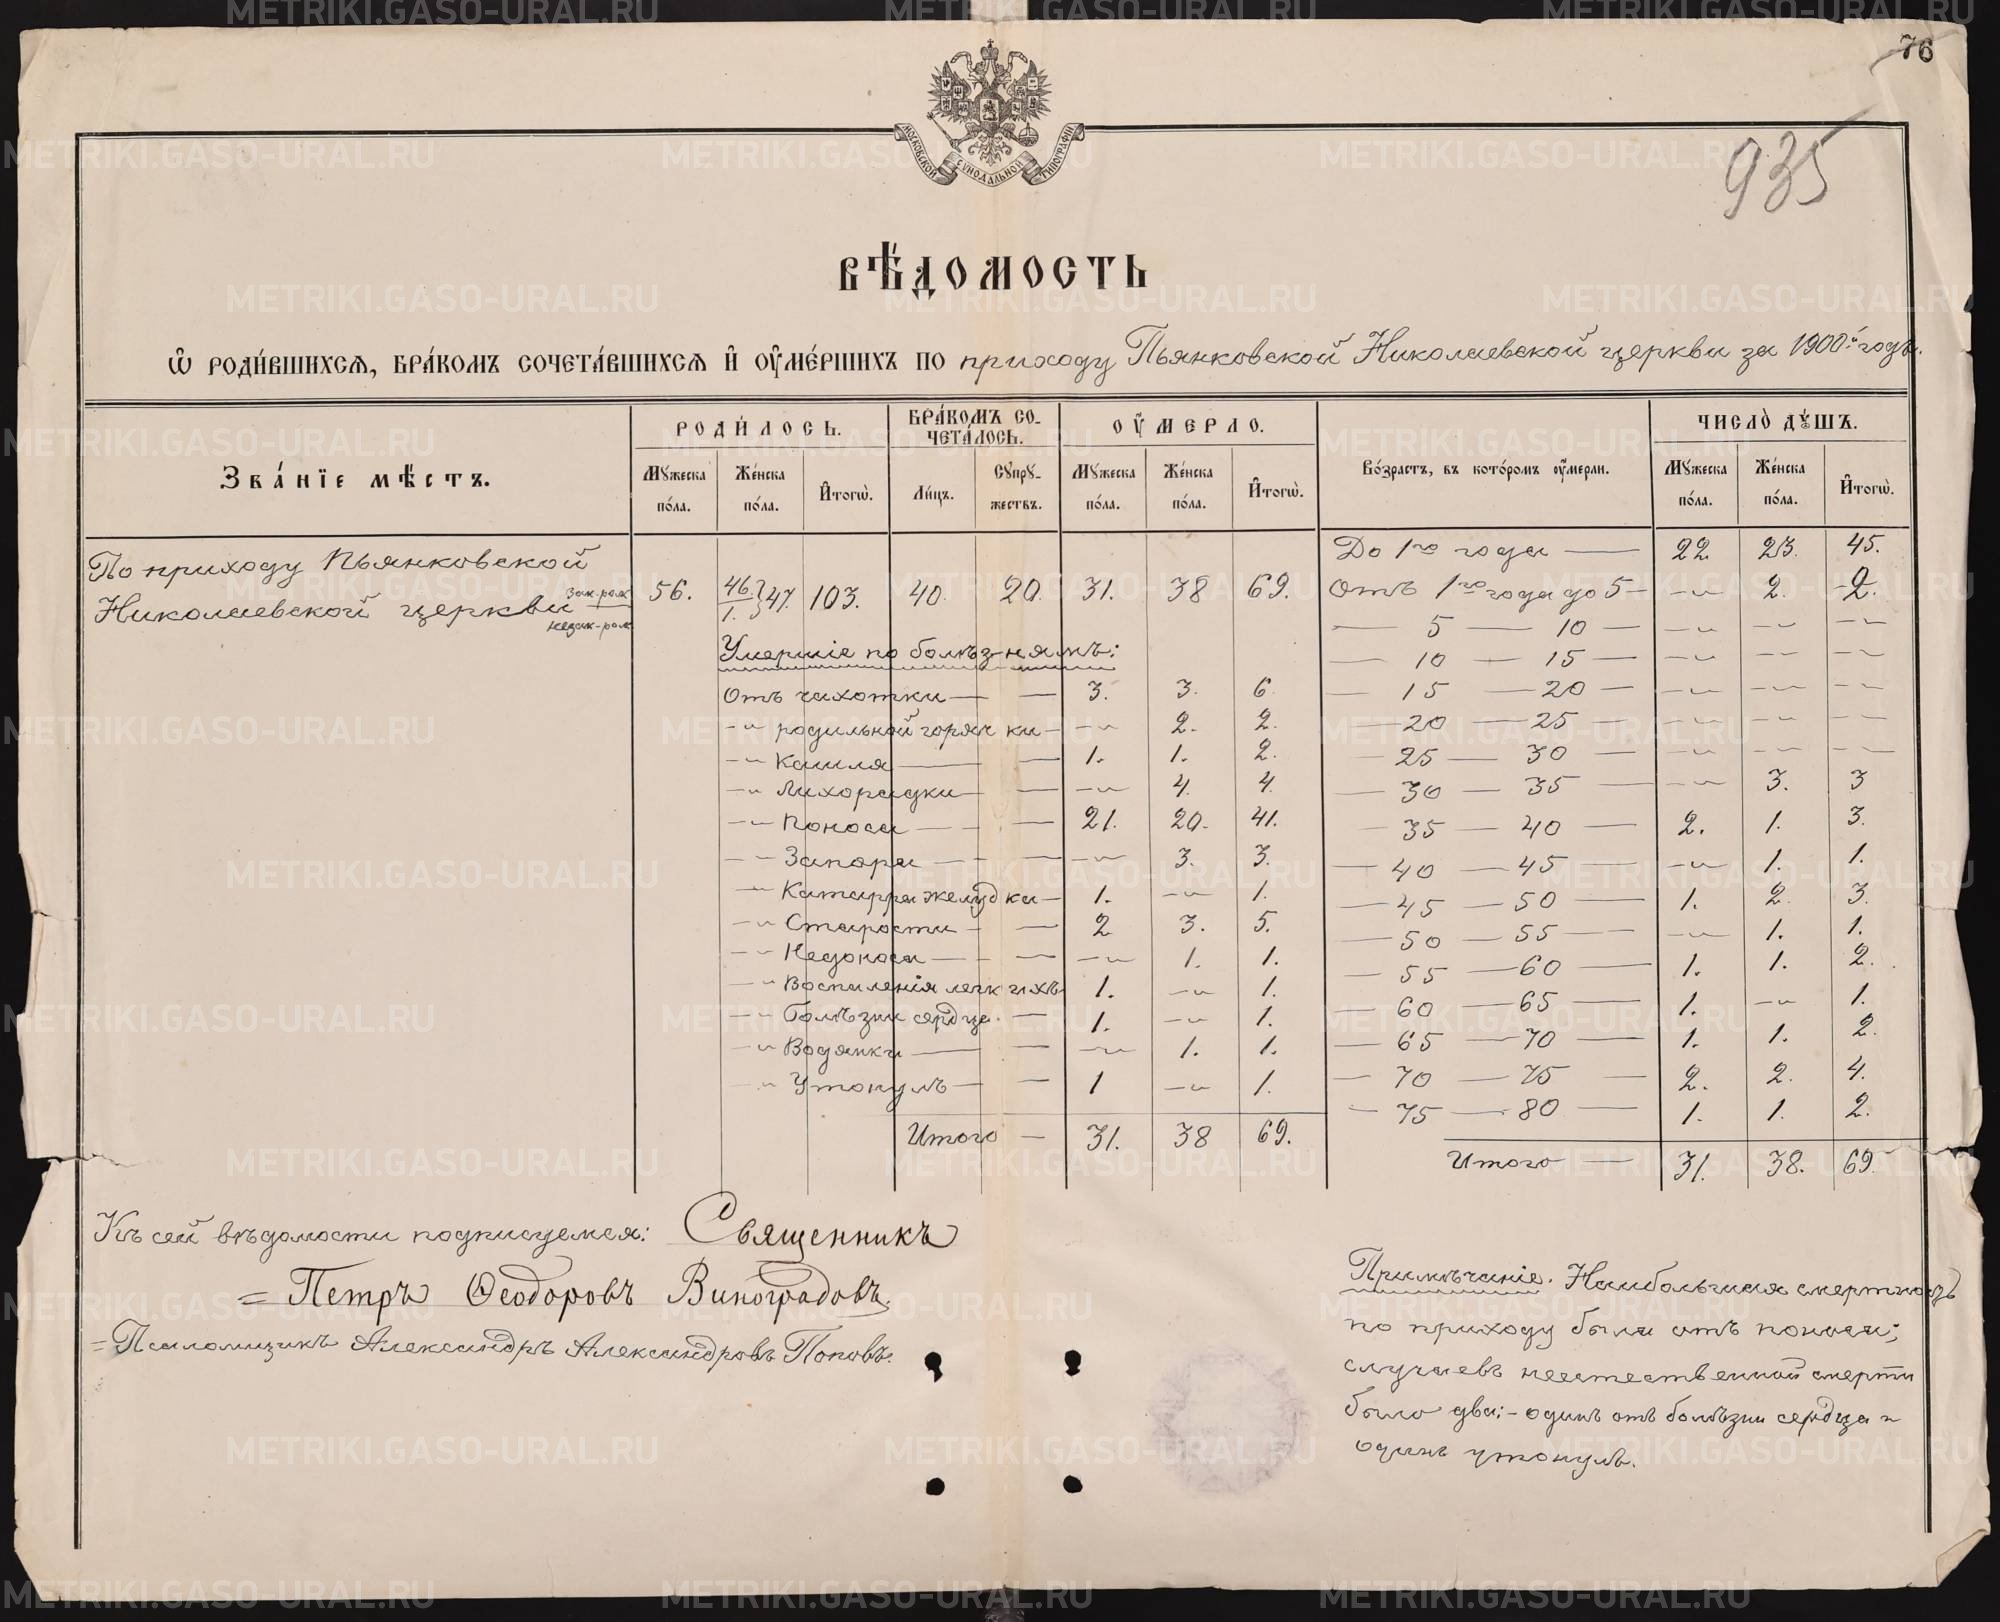 76
935
МОСКОВСКОЙ СѴНОДАЛЬНОЙ ТИПОГРАФІИ
ВѢДОМОСТЬ
Ѡ РОДИВШИХСЯ, БРАКОМЪ СОЧЕТАВШИХСЯ И ОУМЕРШИХЪ ПО приходу Пьянковской Николаевской церкви за 1900й годъ.
Званіе мѣстъ. | РОДИЛОСЬ. | БРАКОМЪ СО-ЧЕТАЛОСЬ. | ОУМЕРЛО. | Возрастъ, въ которомъ оумерли. | ЧИСЛО ДУШЪ.
Мужеска пола. | Женска пола. | Итогѡ. | Лицъ. | Супружествъ. | Мужеска пола. | Женска пола. | Итогѡ. | Мужеска пола. | Женска пола. | Итогѡ.
По приходу Пьянковской
Николаевской церкви зак-рож незак-рож 56. 46. 1. } 47. 103. 40. 20. 31. 38 69.
Умершіе по болѣзнямъ:
Отъ чахотки — — 3. 3. 6.
-"- родильной горячки — -"- 2. 2.
-"- Кашля — — 1. 1. 2.
-"- Лихорадки — — -"- 4. 4.
-"- Поноса — — 21. 20. 41.
-"- Запора — — -"- 3. 3.
-"- Катарра желудка — 1. -"- 1.
-"- Старости — — 2 3. 5.
-"- Недоноса — — -"- 1. 1.
-"- Воспаленія легкихъ 1. -"- 1.
-"- Болѣзни сердца. — 1. -"- 1.
-"- Водянки — — -"- 1. 1.
-"- Утонулъ — — 1 -"- 1.
Итого — 31. 38 69.
До 1го года — 22 23. 45.
Отъ 1го года до 5 — -"- 2. 2.
— 5 — 10 — -"- -"- -"-
— 10 — 15 — -"- -"- -"-
— 15 — 20 — -"- -"- -"-
— 20 — 25 — -"- -"- -"-
— 25 — 30 — -"- -"- -"-
— 30 — 35 — -"- 3. 3
— 35 — 40 — 2. 1. 3.
— 40 — 45 — -"- 1. 1.
— 45 — 50 — 1. 2. 3.
— 50 — 55 — -"- 1. 1.
— 55 — 60 — 1. 1. 2.
— 60 — 65 — 1. -"- 1.
— 65 — 70 — 1. 1. 2.
— 70 — 75 — 2. 2. 4.
— 75 — 80 — 1. 1. 2.
Итого — 31. 38. 69.
Къ сей вѣдомости подписуемся: Священникъ
= Петръ Ѳеодоровъ Виноградовъ.
= Псаломщикъ Александръ Александровъ Поповъ.
Примѣчаніе. Наибольшая смертность
по приходу была отъ поноса;
случаевъ неестественной смерти
было два: - одинъ отъ болѣзни сердца и
одинъ утонулъ.
METRIKI.GASO-URAL.RU